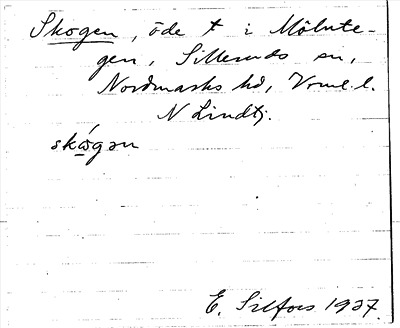 Skogen, öde t i Mölnte-
gen, Silleruds sn,
Nordmarks hd, Vrml. l.
N Lindtj.
skógən
E. Silfors 1937.